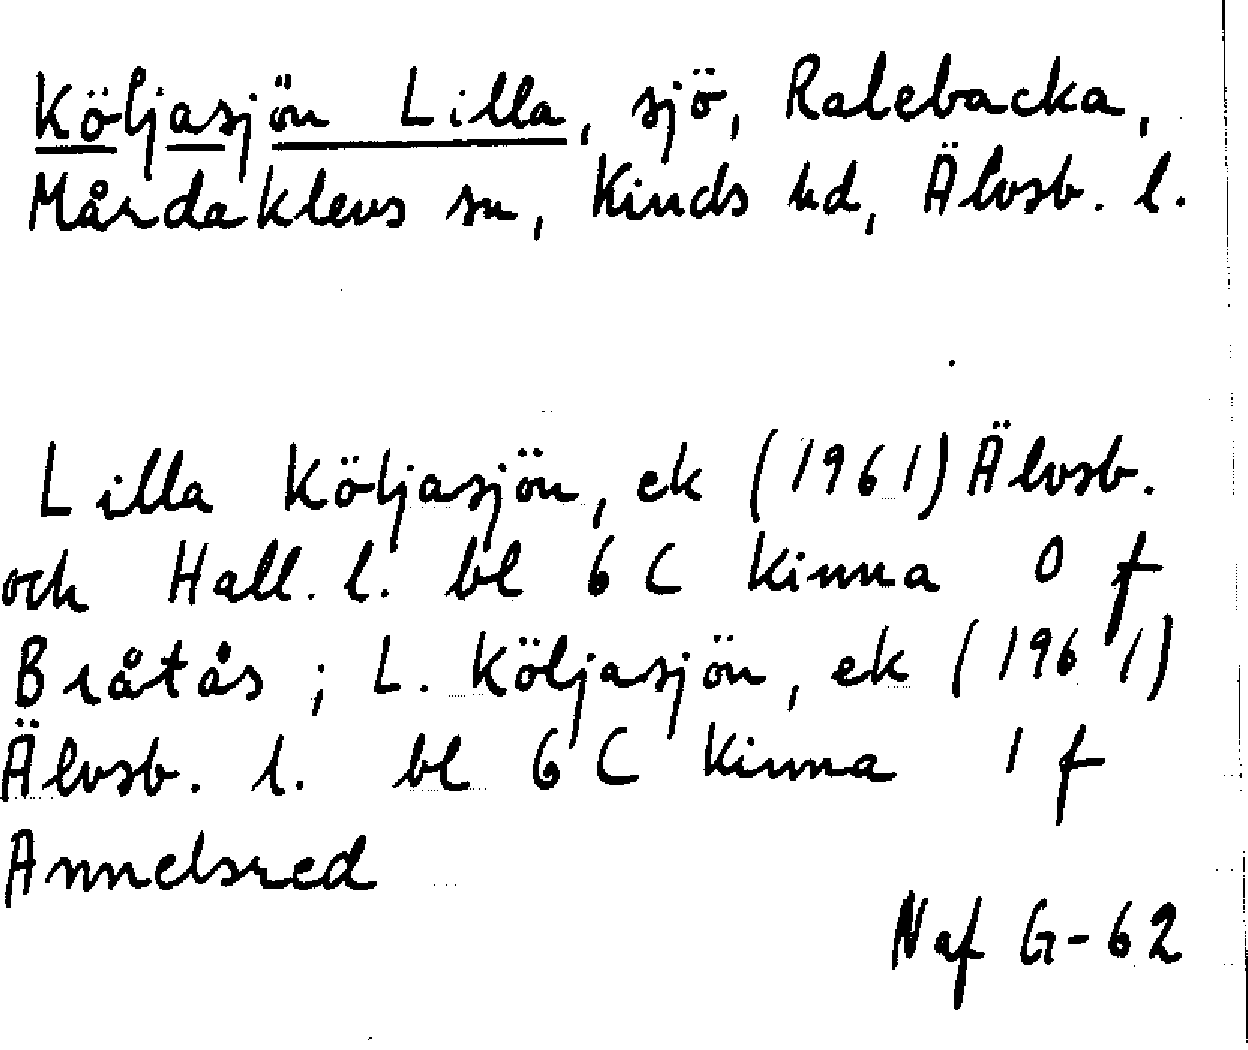 Köljasjön Lilla, sjö, Ralebacka,
Mårdaklevs sn, Kinds hd, Älvsb. l.
Lilla Köljasjön, ek (1961) Älvsb.
och Hall. l. bl 6 C Kinna 0 f
Bråtås; L. Köljasjön, ek (1961)
Älvsb. l. bl 6 C Kinna 1 f
Annelsred
Naf G-62